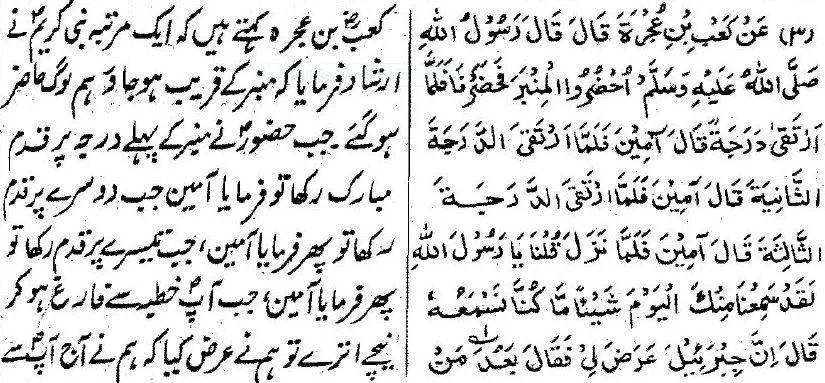 (٣) عَنْ كَعْبِ بْنِ عُجْرَةَ قَالَ قَالَ رَسُوْلُ اللهِ
صَلَّى اللهُ عَلَيْهِ وَسَلَّمَ اُحْضُرُوا الْمِنْبَرَ فَحَضَرْنَا فَلَمَّا
اَرْتَقٰى دَرَجَةً قَالَ آمِيْنَ فَلَمَّا اَرْتَقٰى الدَّرَجَةَ
الثَّانِيَةَ قَالَ آمِيْنَ فَلَمَّا ارْتَقٰى الدَّرَجَةَ
الثَّالِثَةَ قَالَ آمِيْنَ فَلَمَّا نَزَلَ قُلْنَا يَا رَسُوْلَ اللهِ
لَقَدْ سَمِعْنَا مِنْكَ الْيَوْمَ شَيْئًا مَّا كُنَّا نَسْمَعُهٗ
قَالَ اِنَّ جِبْرَئِيْلَ عَرَضَ لِيْ فَقَالَ بَعُدَ مَنْ
کعبؓ بن عجرہ کہتے ہیں کہ ایک مرتبہ نبی کریمؐ نے
ارشاد فرمایا کہ منبر کے قریب ہو جاؤ ہم لوگ حاضر
ہو گئے۔ جب حضورؐ نے منبر کے پہلے درجہ پر قدم
مبارک رکھا تو فرمایا آمین جب دوسرے پر قدم
رکھا تو پھر فرمایا آمین، جب تیسرے پر قدم رکھا تو
پھر فرمایا آمین، جب آپؐ خطبہ سے فارغ ہو کر
نیچے اترے تو ہم نے عرض کیا کہ ہم نے آج آپؐ سے